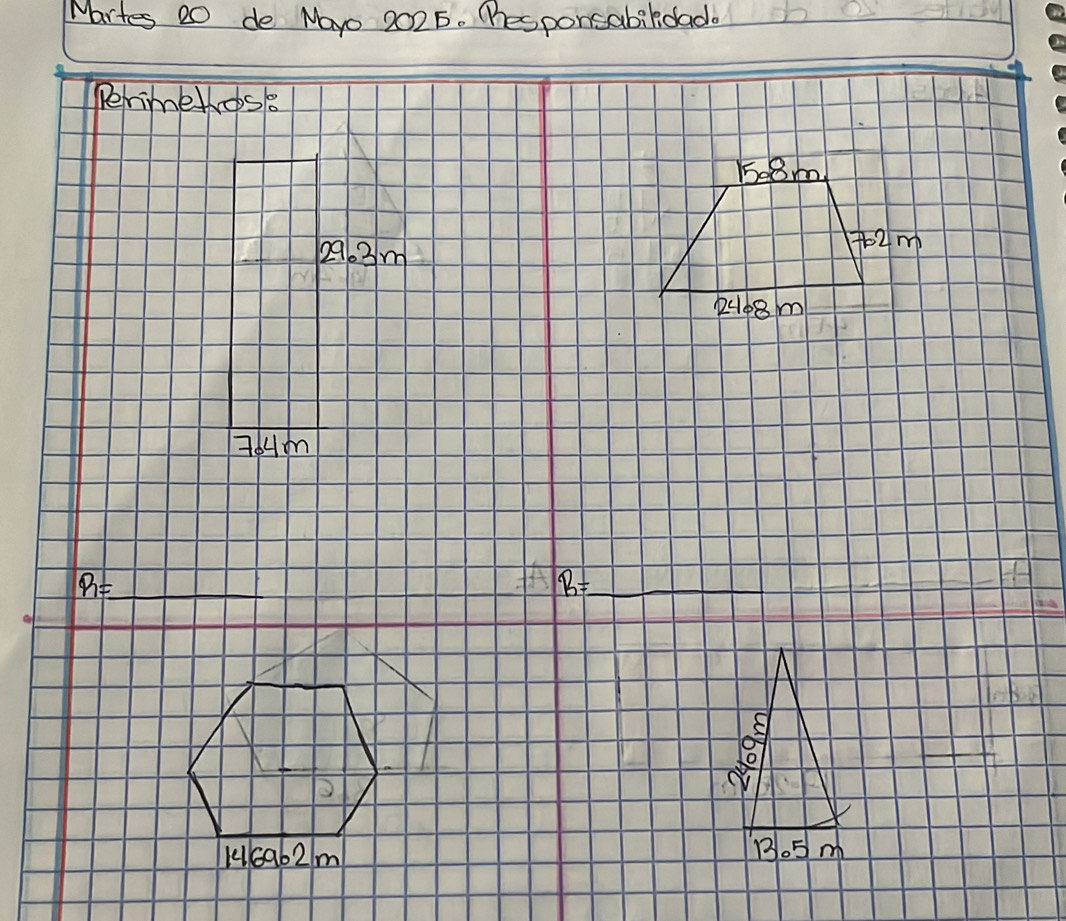 Martes 20 de Mayo 2025. Responsabilidad.
Perimetros:
29.3m
7.4m
15.8m.
7.2m
24.8m
R=
R=
1469.2m
24.9m
13.5m